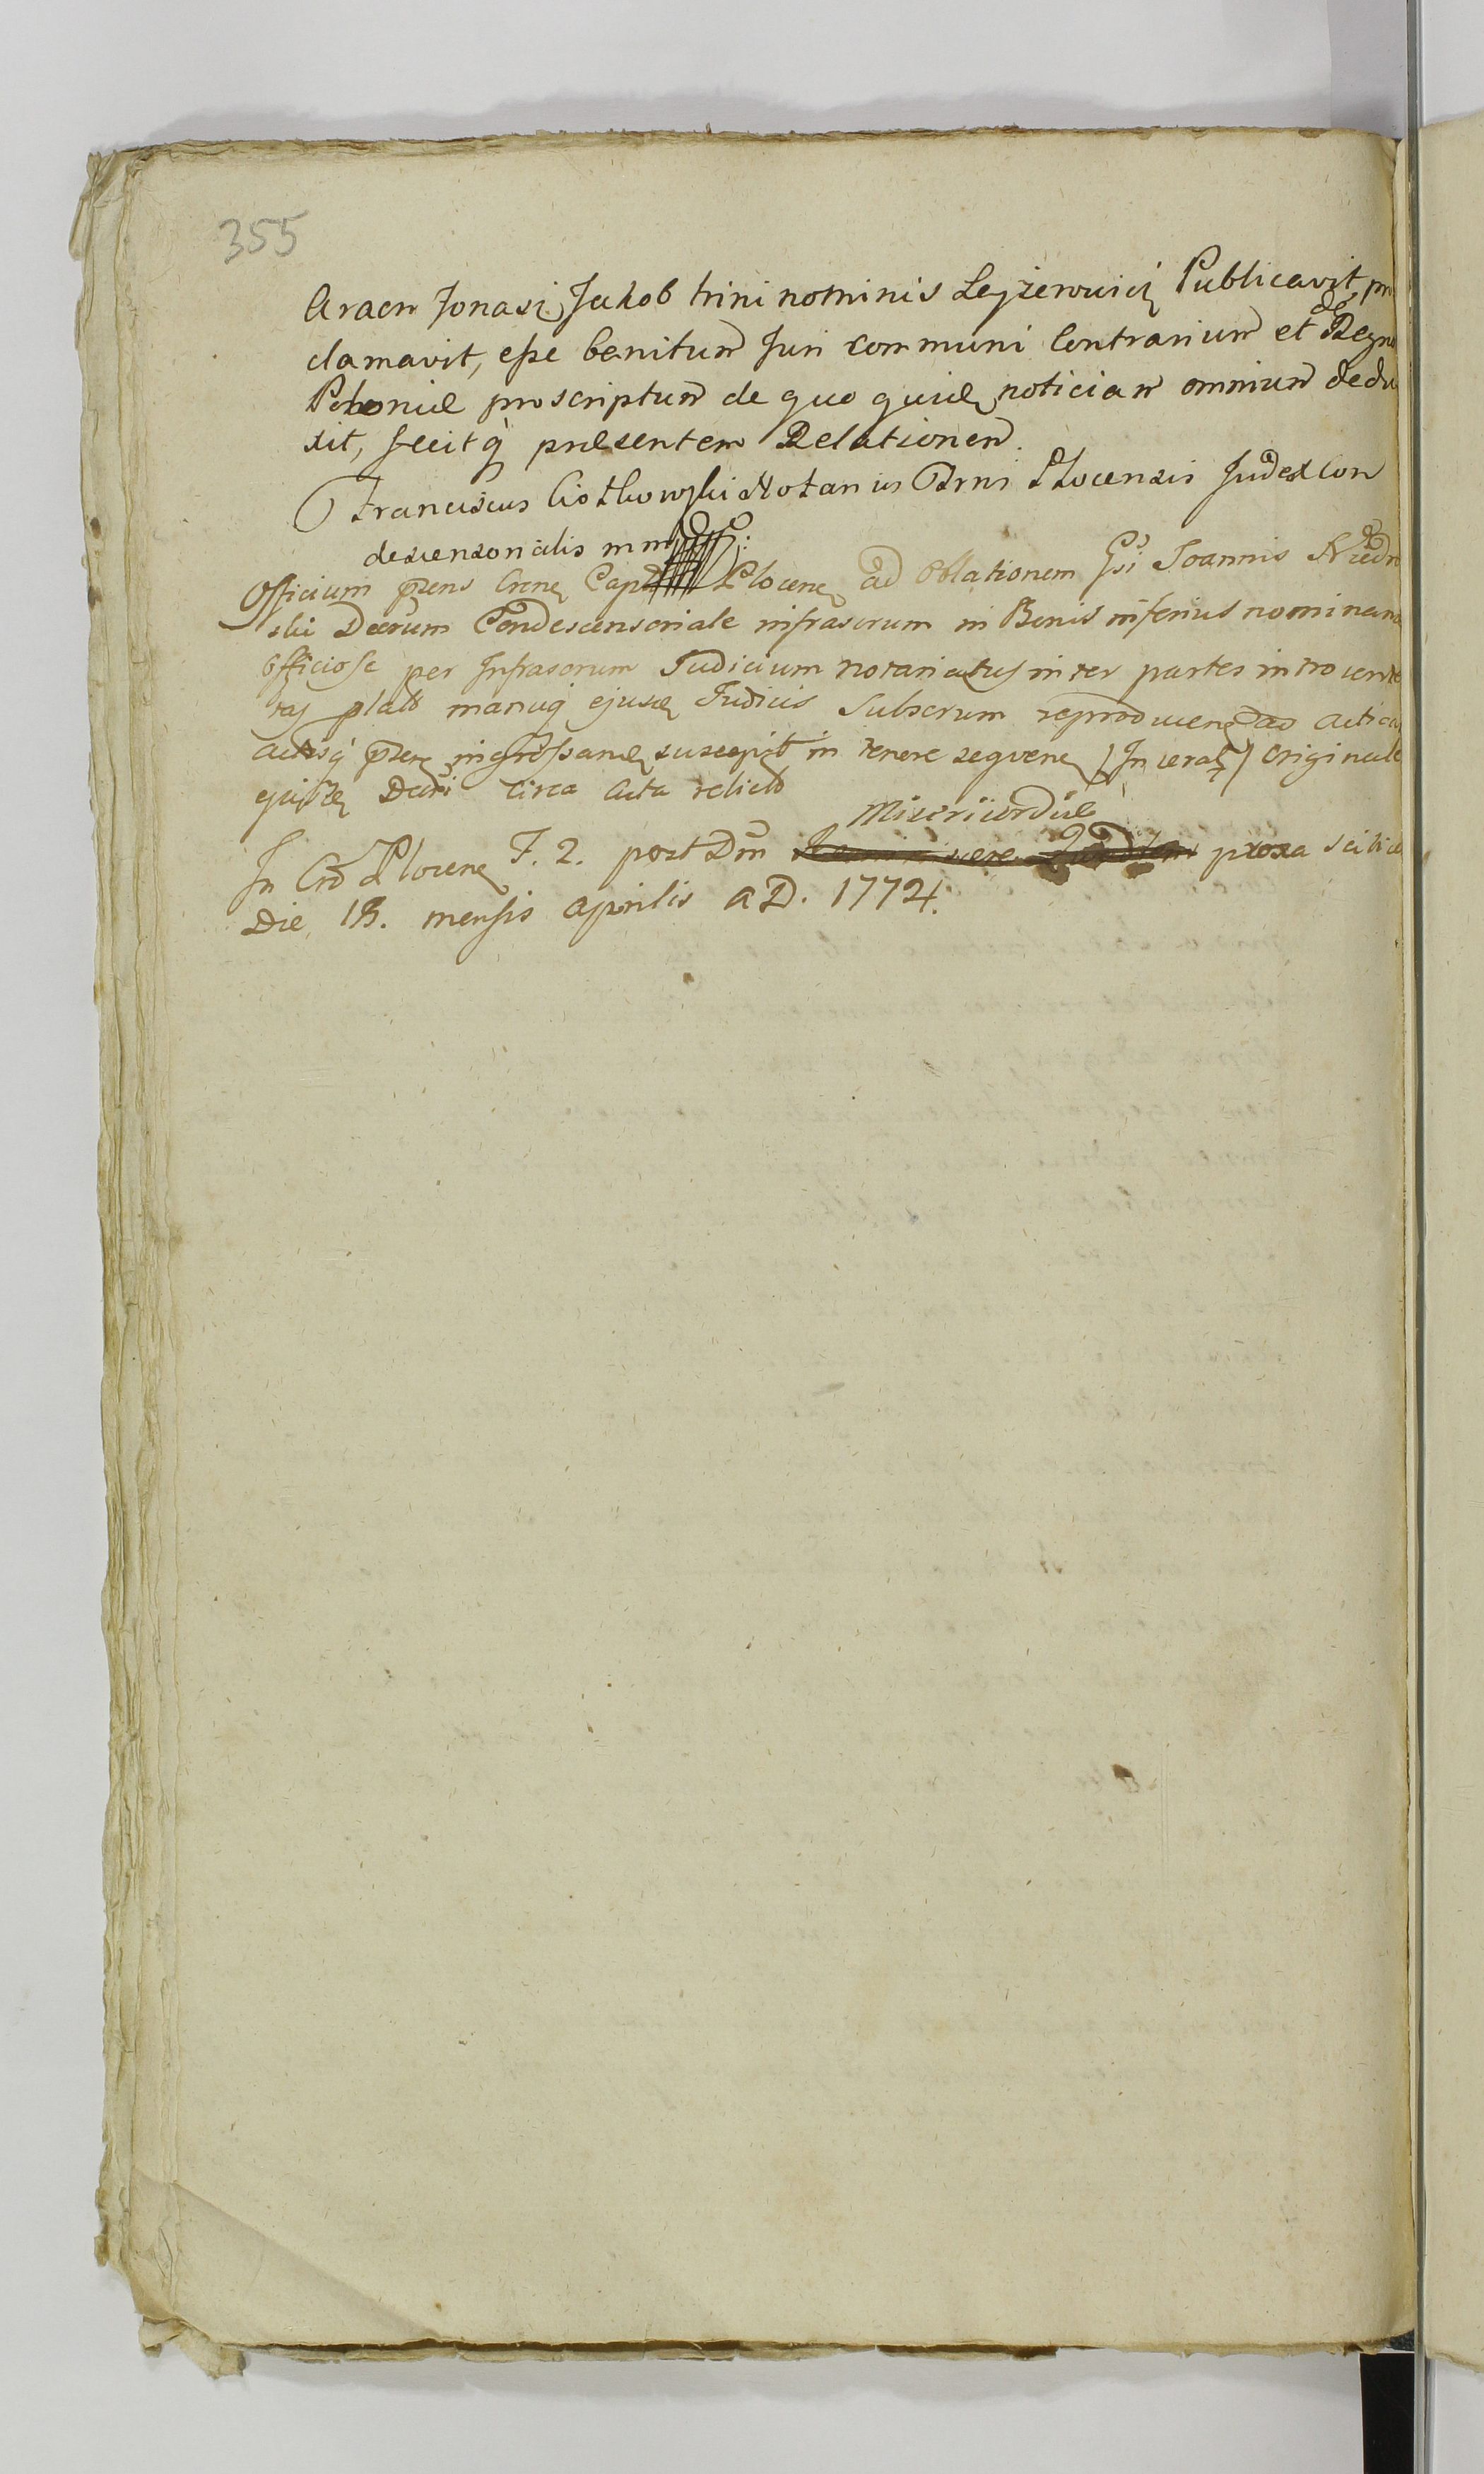 355
Aracn Jonasi Jakob trini nominis Leyzerowicz Publicavit, pro
clamavit, esse banitum Juri communi Contrarium et de Regno
Poloniæ proscriptum de quo quidę noticiam omnium dedu
xit, fecitq̃ præsentem Relationem.
Franciscus Ciołkowski Notarius Trris Plocensis Judex Con
descensorialis mm
Officium præns Crenę Capit Plocenę ad Oblationem Gsi Joannis
ski Decrum Condescensoriale infrascrum in Bonis inferius nominan
Officiose per Infrascrum Judicium notariatus inter partes introvente
tas plato manuq̃ ejusdę Judicis Subscrum reproducenę ad acticand
actisq̃ præsen ingrossandę suscepit in tenere sequenę (In verał) Originale
ejusdę Decri circa Acta relicto
Misericordiæ
In Cro Plocenę F. 2. post Dm proxa scilicet
Die 18. mensis Aprilis AD. 1774.